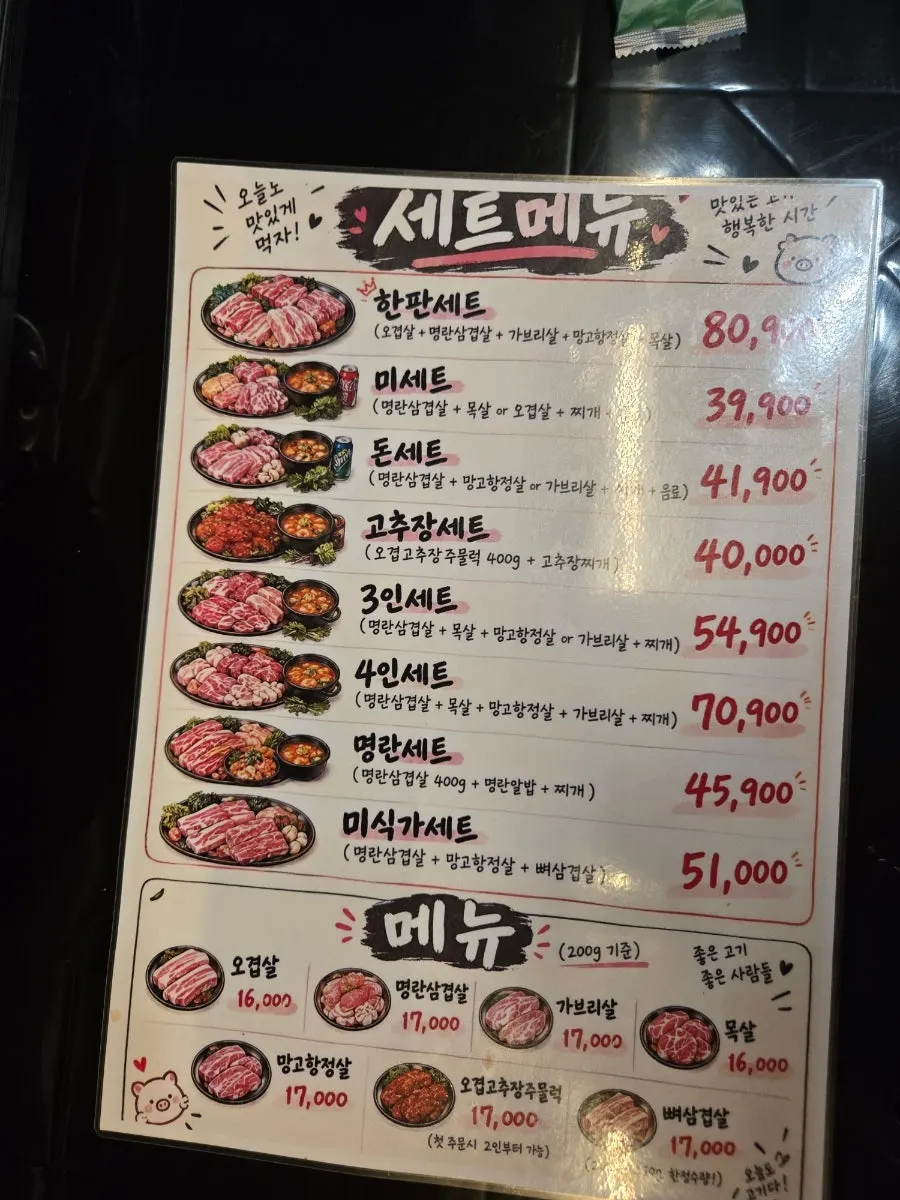 오늘도
맛있게
먹자!
세트메뉴
맛있는
행복한 시간
한판세트
(오겹살 + 명란삼겹살 + 가브리살 + 망고항정살 + 목살)
80,900
미세트
(명란삼겹살 + 목살 or 오겹살 + 찌개
39,900
돈세트
(명란삼겹살 + 망고항정살 or 가브리살 + 찌개 + 음료)
41,900
고추장세트
(오겹고추장주물럭 400g + 고추장찌개)
40,000
3인세트
(명란삼겹살 + 목살 + 망고항정살 or 가브리살 + 찌개)
54,900
4인세트
(명란삼겹살 + 목살 + 망고항정살 + 가브리살 + 찌개)
70,900
명란세트
(명란삼겹살 400g + 명란알밥 + 찌개)
45,900
미식가세트
(명란삼겹살 + 망고항정살 + 뼈삼겹살)
51,000
메뉴
(200g 기준)
좋은 고기
좋은 사람들
오겹살
16,000
명란삼겹살
17,000
가브리살
17,000
목살
16,000
망고항정살
17,000
오겹고추장주물럭
17,000
(첫 주문시 2인부터 가능)
뼈삼겹살
17,000
한정수량!)
오늘도
고기다!